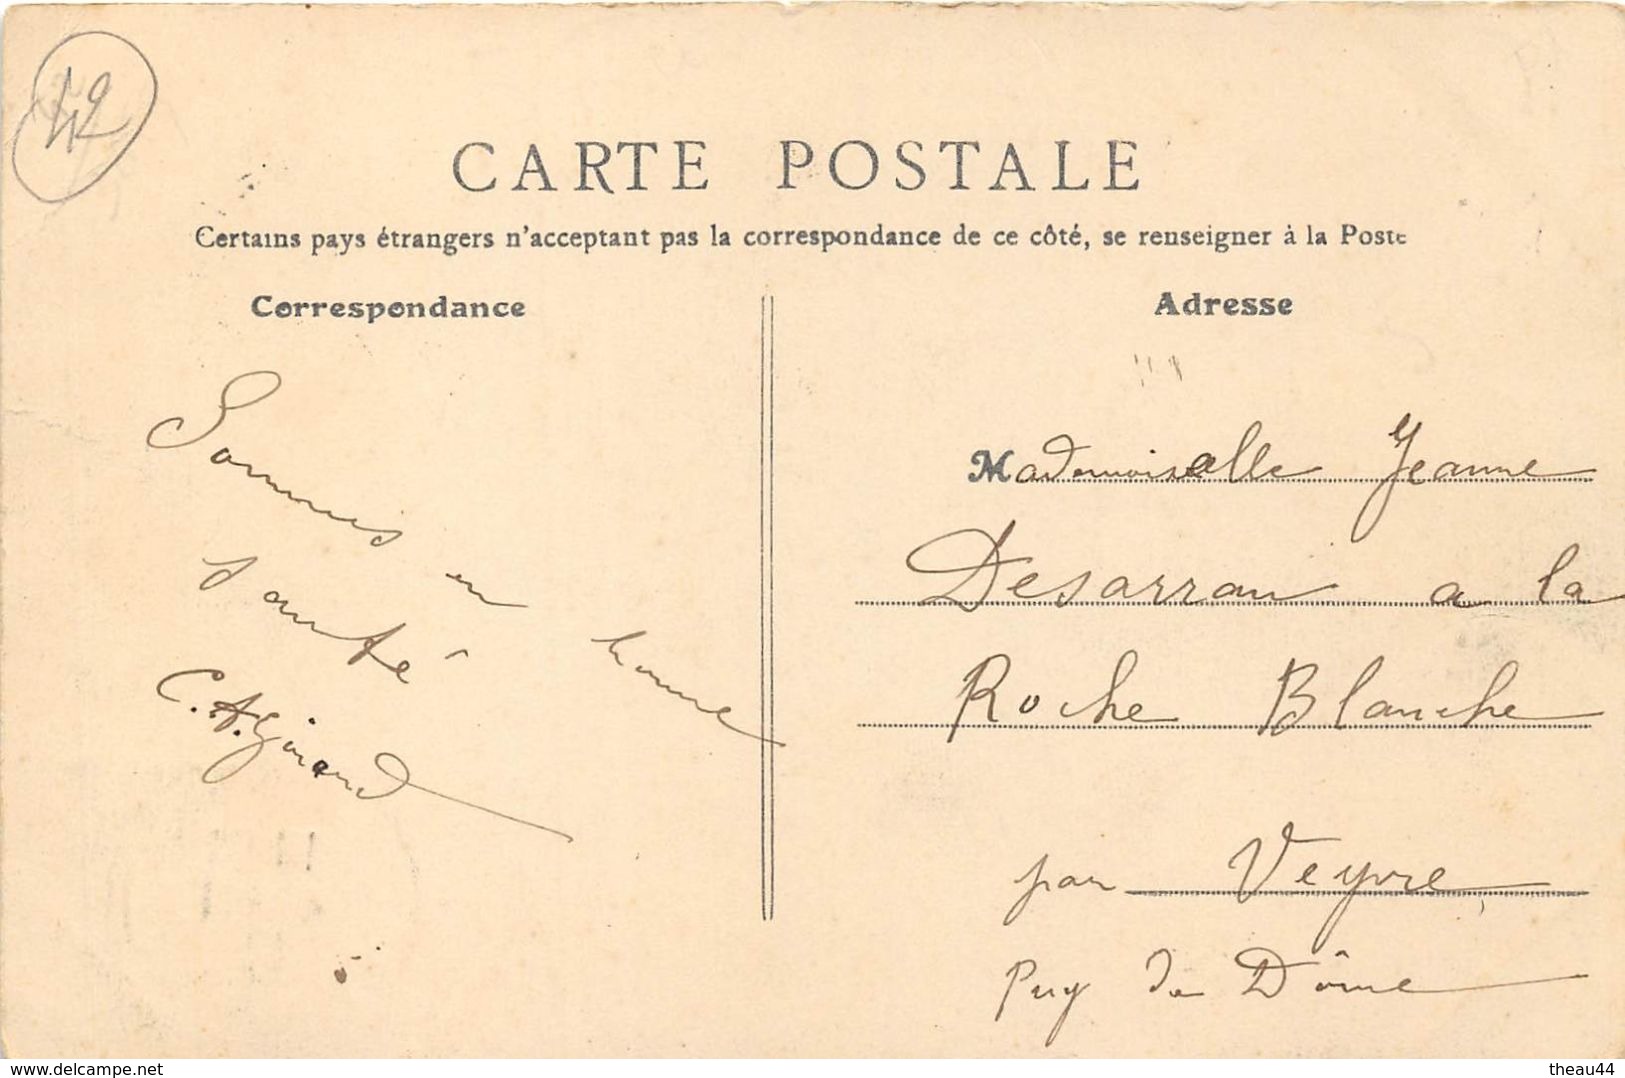 42
CARTE POSTALE
Certains pays étrangers n'acceptant pas la correspondance de ce côté, se renseigner à la Poste
Correspondance
Sommes en bonne
santé
C. A. Girard
Adresse
Mademoiselle Jeanne
Desarran a la
Roche Blanche
par Veyre
Puy de Dôme
www.delcampe.net
theau44